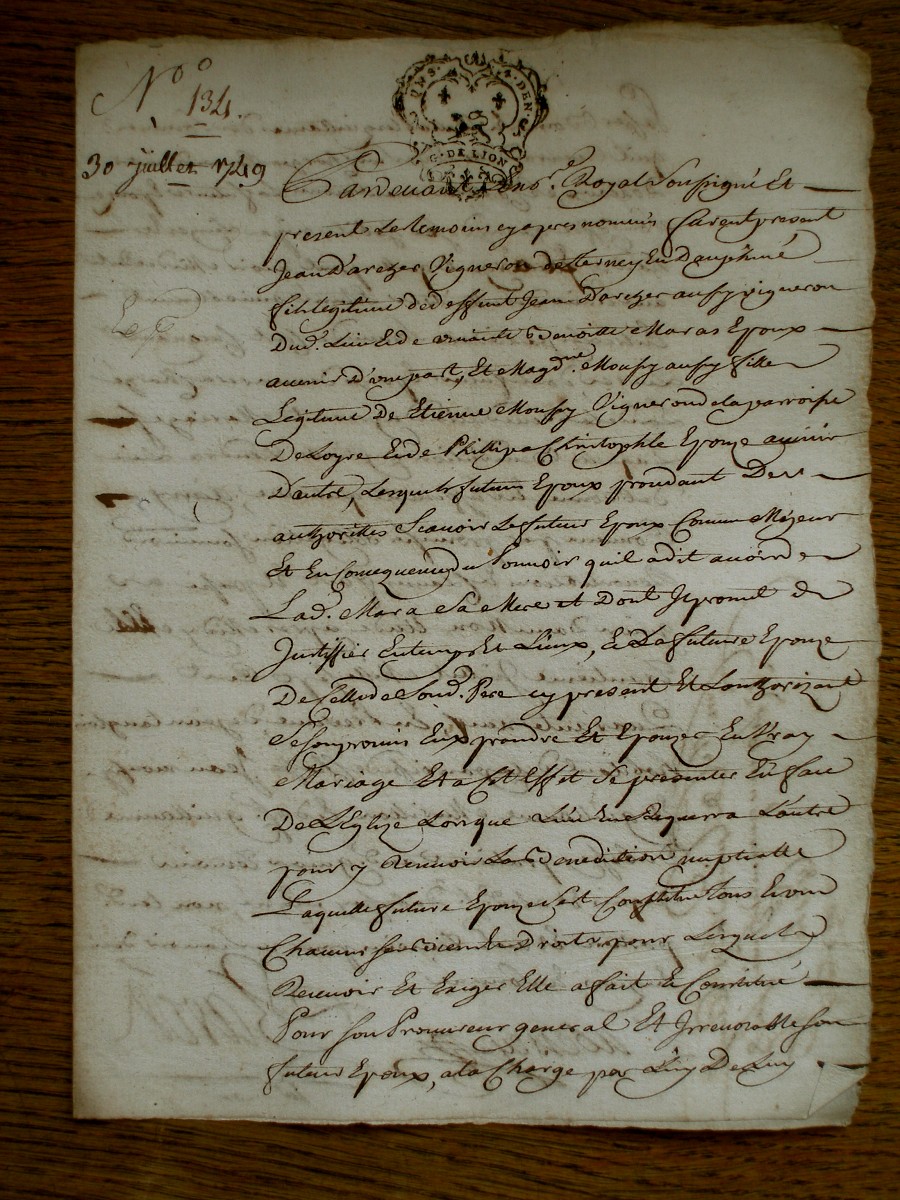 N° 134.
DEN.
G. DE LION
30 juillet 1749
Pardevant Le nore. Royal Soussigné Et
present Les temoins cy apres nommés furent present
Jean Darezer Vigneron de Terney En Dauphiné
fils legitime de deffunt Jean Darezer aussy vigneron
Dud. Lieu Et de Benoitte Maras Epoux
avenir d'une part, Et Magdne. Moussy aussy fille
Legitime De Etienne Moussy Vigneron de la parroisse
De Loyre Et de Phillipa Christophle Epouze avenir
D'autre, Lesquels futurs Epoux procedant De
authorittés Scavoir Le futur Epoux Comme Majeur
Et En Consequence du Pouvoir quil a dit avoir de
Lad. Mara Sa Mere et Dont Il promet de
Justiffier En temps Et Lieux, Et La future Epouze
De Celle de Sond. Pere cy present Et L'authorizant
Se sont promis Eux prendre Et Epouzer En Vray
Mariage Et a Cet Effet Se presenter En face
De L'Eglize Lorsque L'un En Requerra L'autre
pour y Recevoir La Benediction nuptialle
Laquelle future Epouze S'est Constitué Tous Et un
Chacuns ses Biens et Droits pour Lesquels
Recevoir Et Exiger Elle a fait Et Constitué
Pour son Procureur general Et Irrevocable son
futur Epoux, a la Charge par Luy De Luy